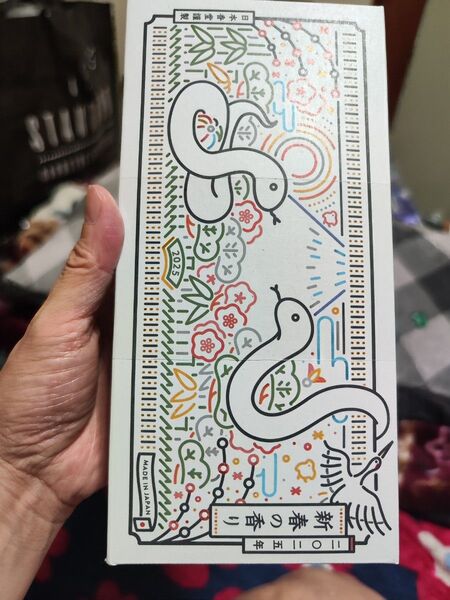 二〇二五年
新春の香り
2025
日本香堂謹製
MADE IN JAPAN